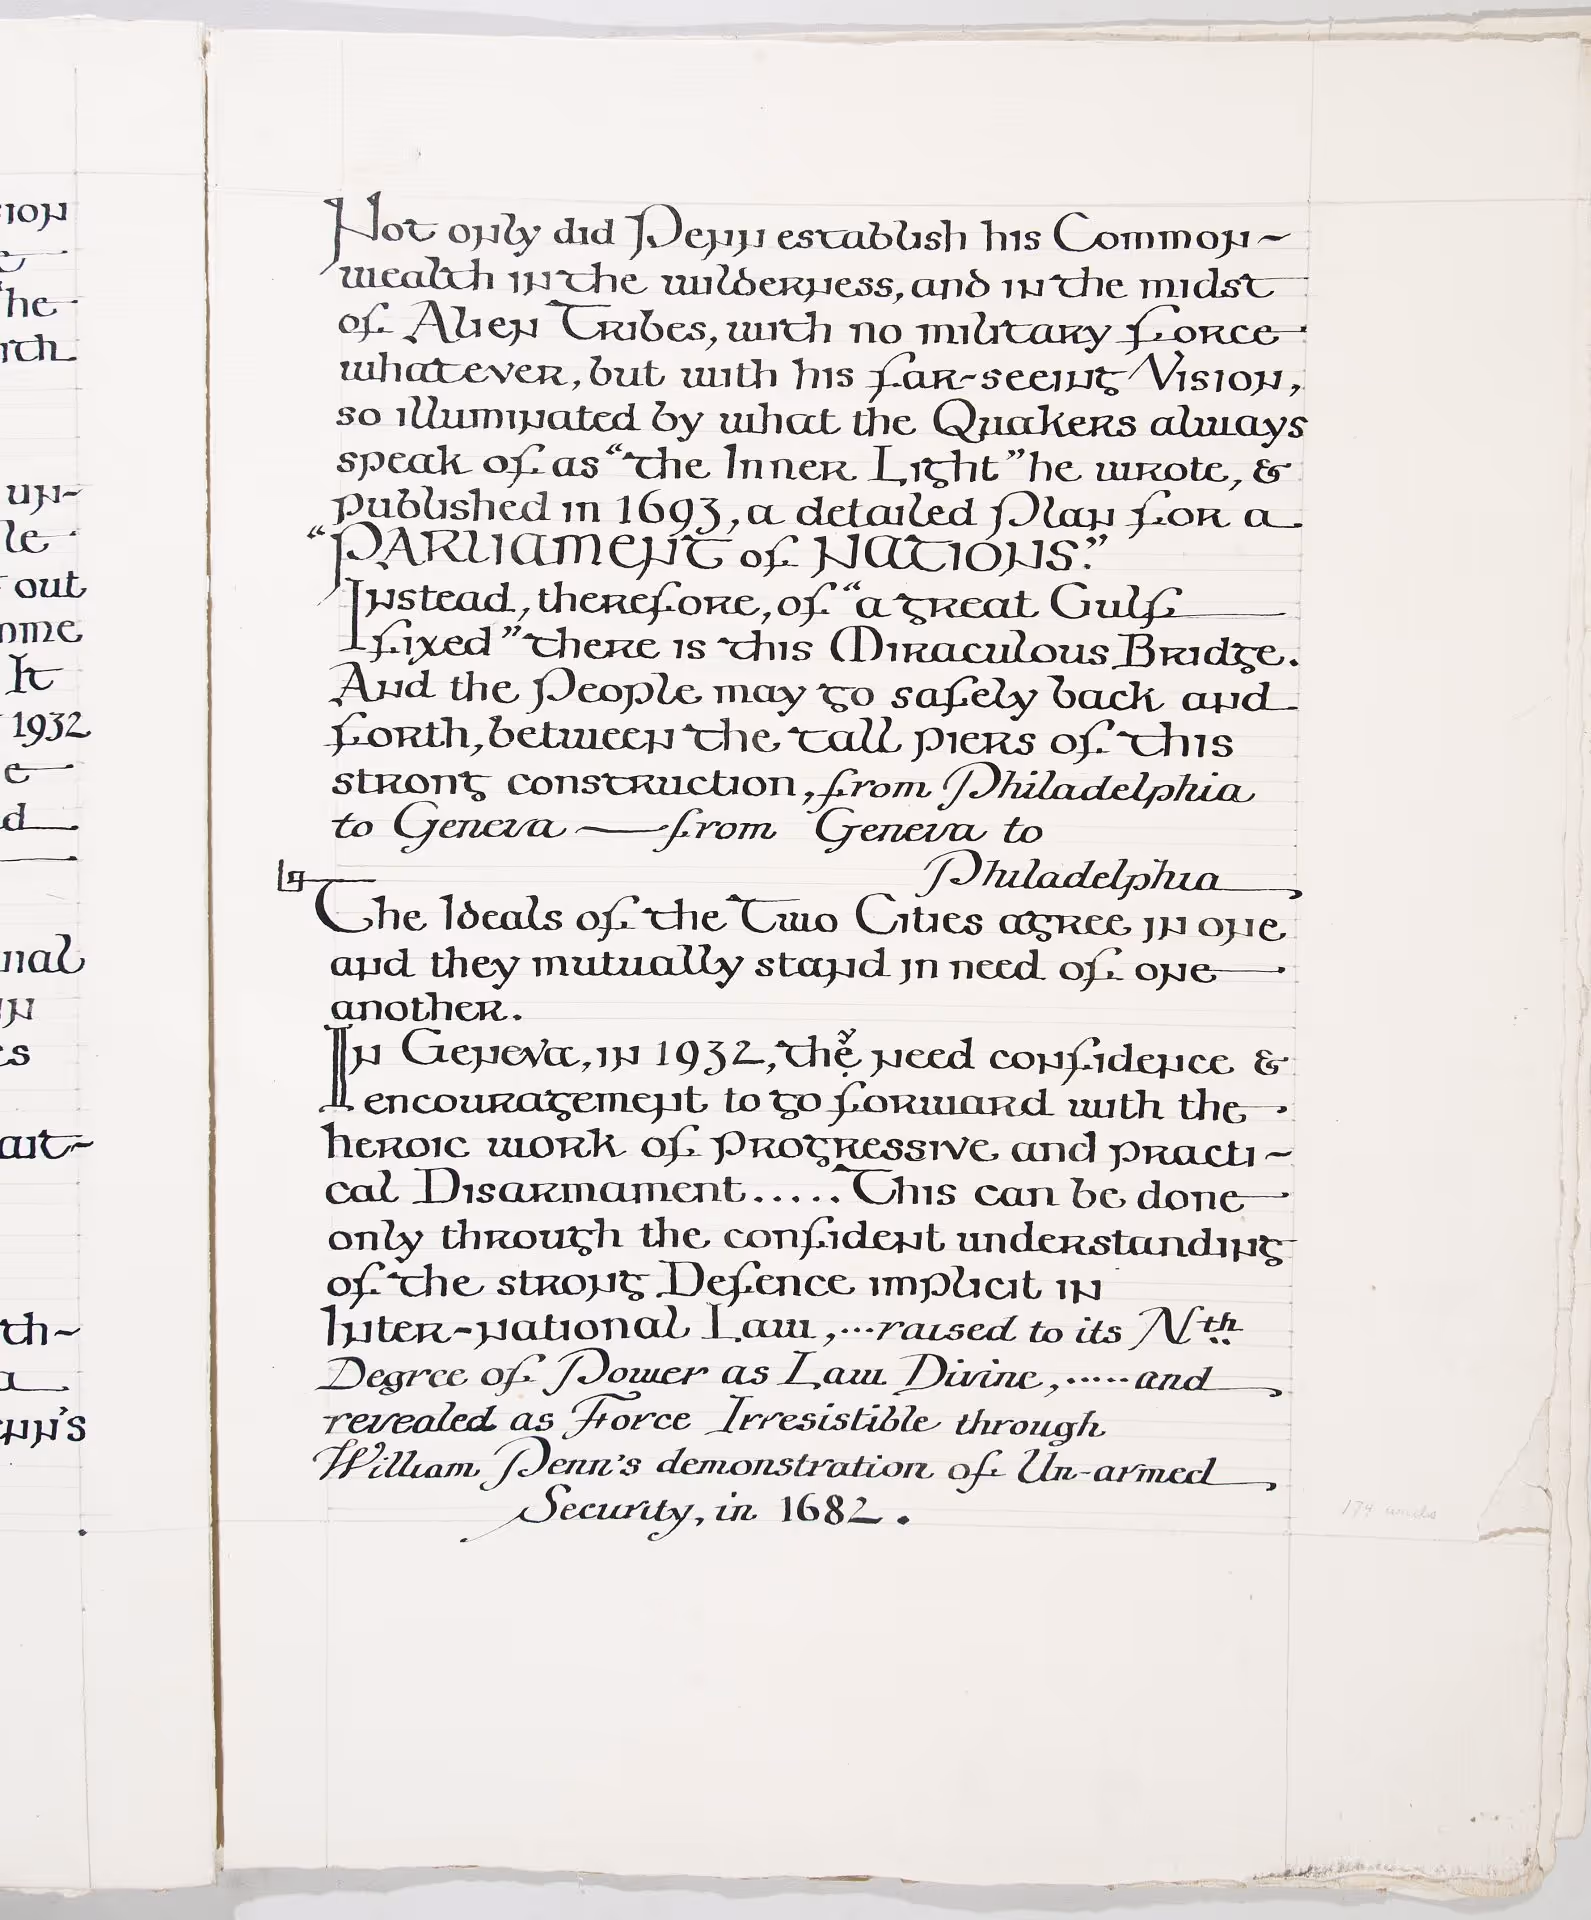 ion
he
rth
un-
le
out
ome
It
1932
e
d
nal
in
es
ait-
th-
a
enn's
Not only did Penn establish his Common-
wealth in the wilderness, and in the midst
of Alien Tribes, with no military force
whatever, but with his far-seeing Vision,
so illuminated by what the Quakers always
speak of as "the Inner Light" he wrote, &
published in 1693, a detailed Plan for a
"PARLIAMENT of NATIONS."
Instead, therefore, of "a great Gulf
fixed" there is this Miraculous Bridge.
And the People may go safely back and
forth, between the tall piers of this
strong construction, from Philadelphia
to Geneva — from Geneva to
Philadelphia
The Ideals of the Two Cities agree in one
and they mutually stand in need of one
another.
In Geneva, in 1932, they need confidence &
encouragement to go forward with the
heroic work of progressive and practi-
cal Disarmament..... This can be done
only through the confident understanding
of the strong Defence implicit in
Inter-national Law, ...raised to its Nth
Degree of Power as Law Divine, .....and
revealed as Force Irresistible through
William Penn's demonstration of Un-armed
Security, in 1682.